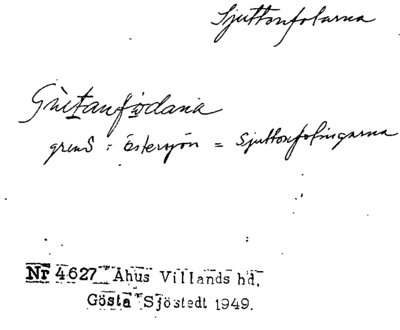 Sjuttonfolarna
Gùetanfọdana
grund i östersjön = Sjuttonfolingarna
Nr 4627 Åhus Villands hd.
Gösta Sjöstedt 1949.